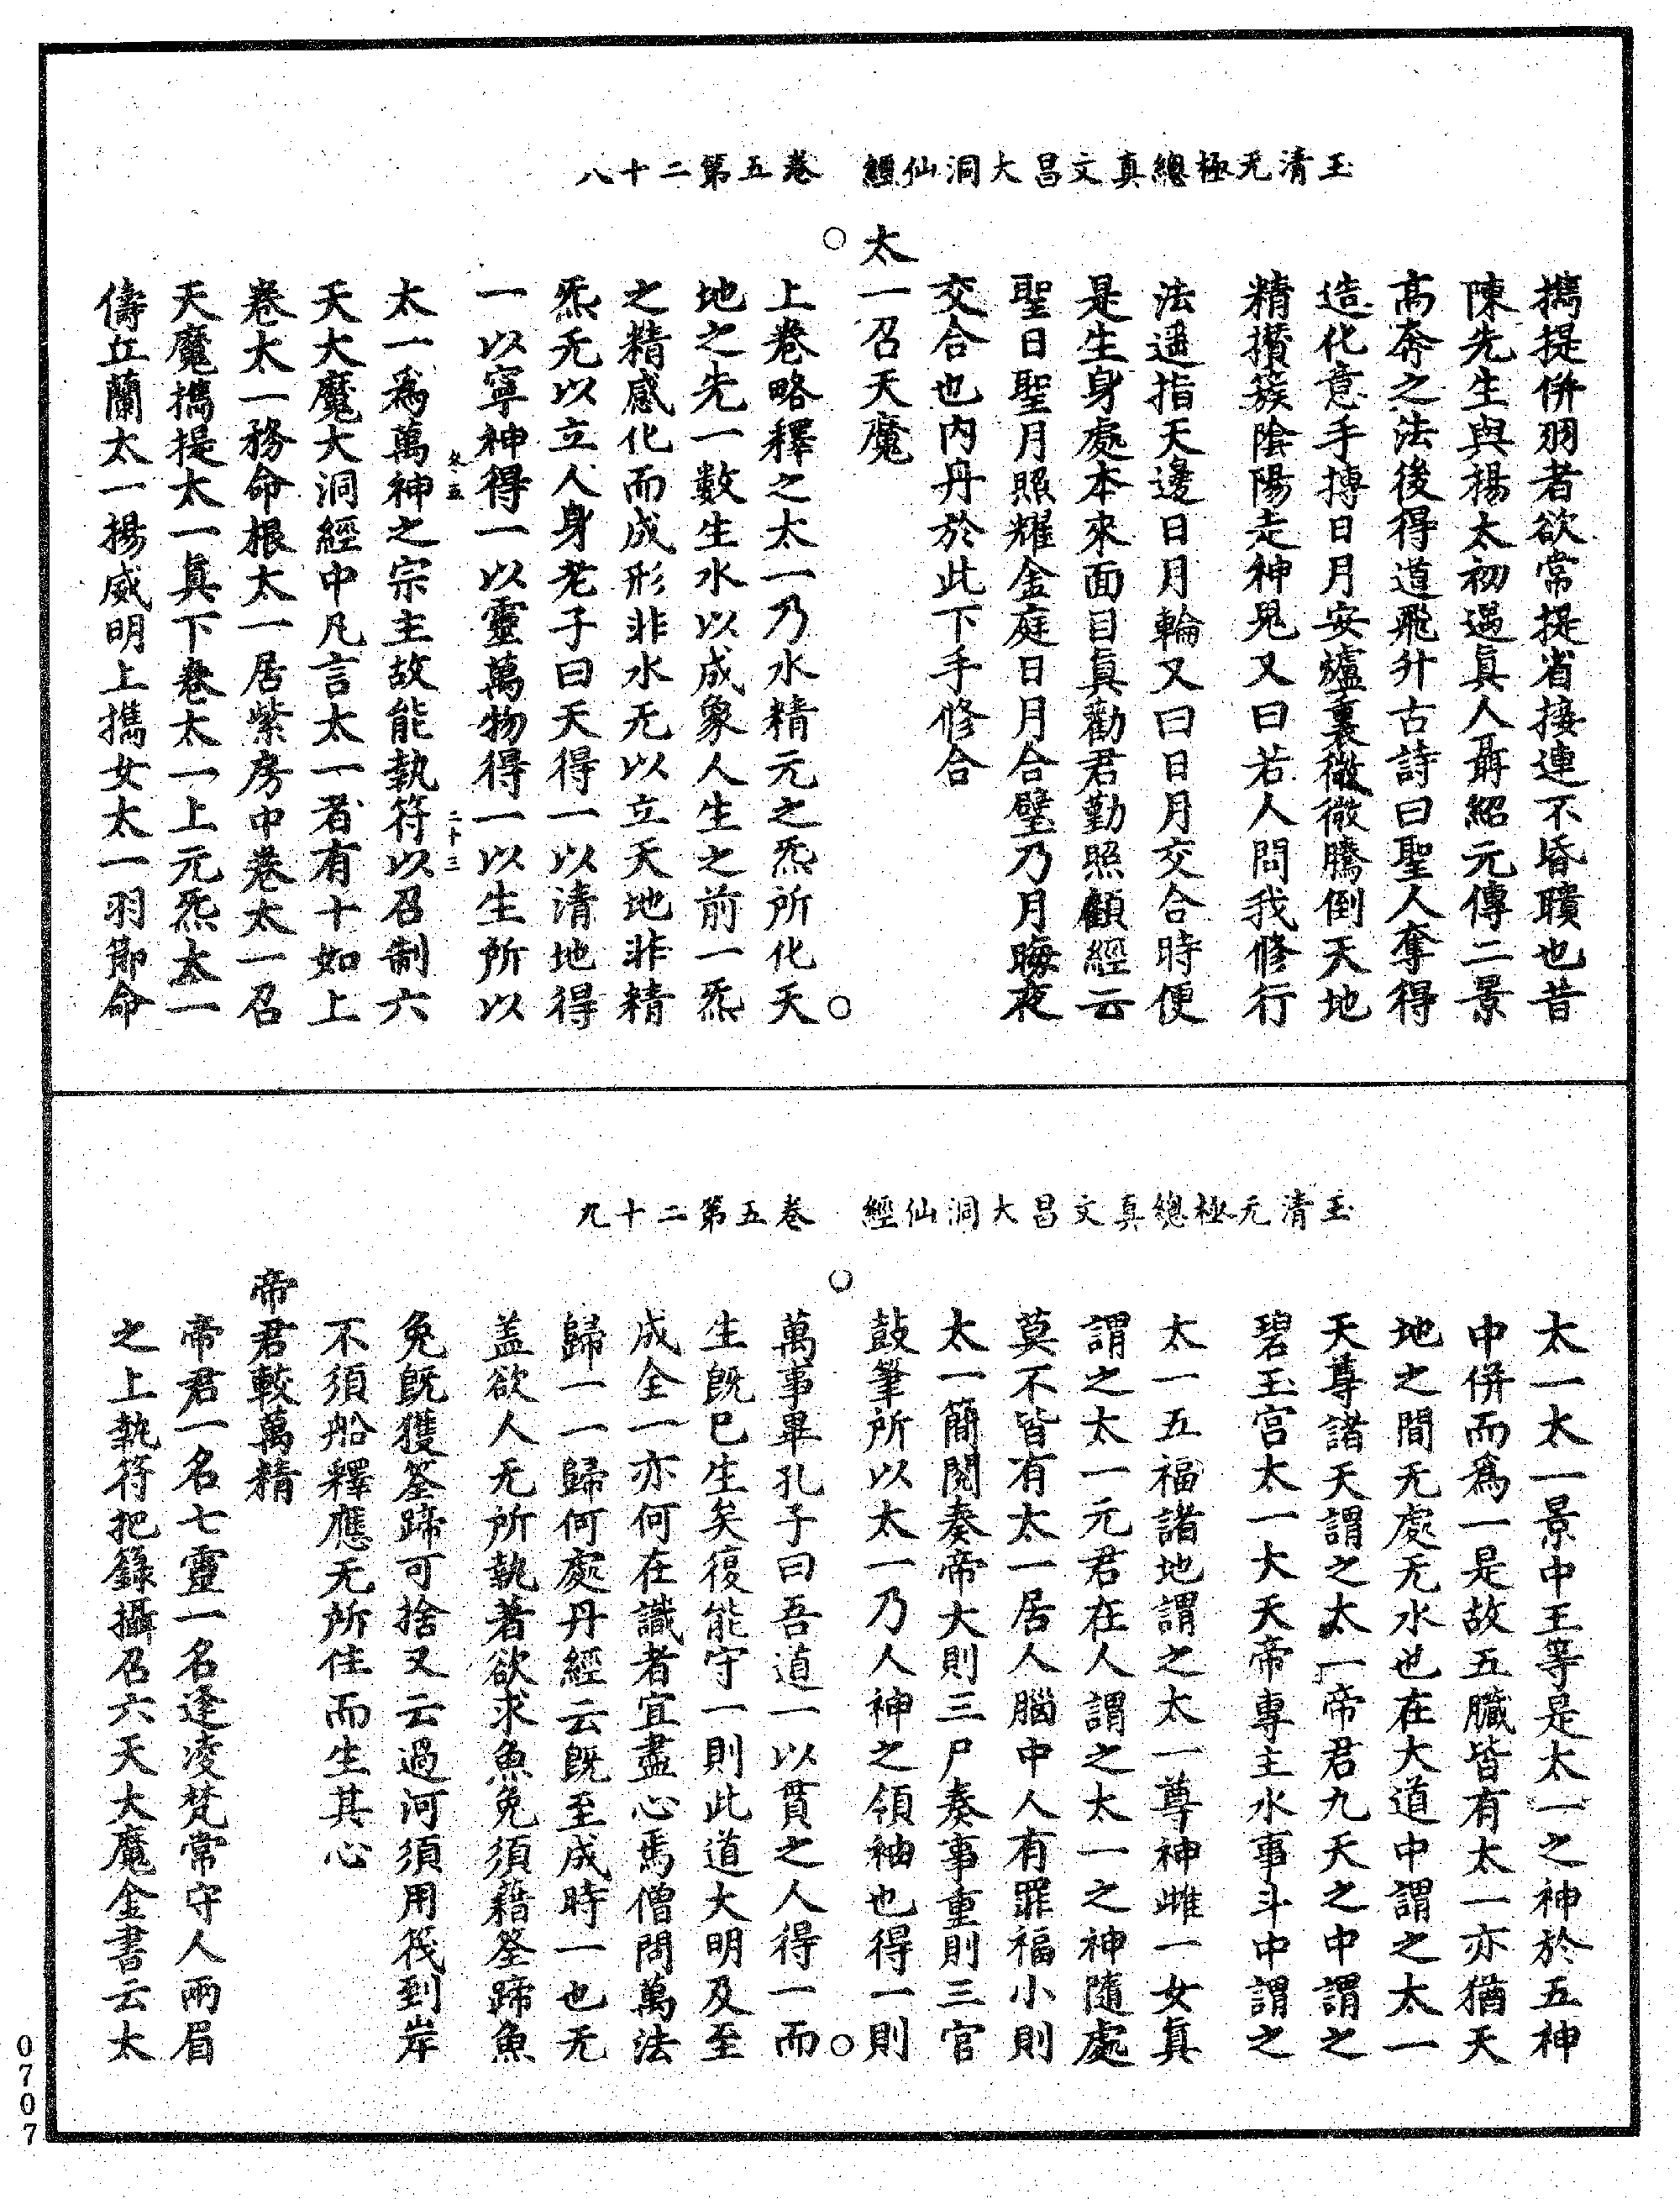 玉清无極總真文昌大洞仙經　卷五第二十八
擕提併羽者欲常提省接連不昏聵也昔
陳先生與楊太初遇真人聶紹元傳二景
高奔之法後得道飛升古詩曰聖人奪得
造化意手搏日月安爐裏微微騰倒天地
精攅簇陰陽走神鬼又曰若人問我修行
法遥指天邊日月輪又曰日月交合時便
是生身處本來面目真勸君勤照顧經云
聖日聖月照耀金庭日月合璧乃月晦夜
交合也内丹於此下手修合
太一召天魔
上卷略釋之太一乃水精元之炁所化天
地之先一數生水以成象人生之前一炁
之精感化而成形非水无以立天地非精
炁无以立人身老子曰天得一以清地得
一以寧神得一以靈萬物得一以生所以
太一爲萬神之宗主故能執符以召制六
天大魔大洞經中凡言太一者有十如上
卷太一務命根太一居紫房中卷太一召
天魔擕提太一真下卷太一上元炁太一
儔丘蘭太一揚威明上擕女太一羽節命
玉清元極總真文昌大洞仙經　卷五第二十九
太一太一景中王等是太一之神於五神
中併而爲一是故五臟皆有太一亦猶天
地之間无處无水也在大道中謂之太一
天尊諸天謂之太一帝君九天之中謂之
碧玉宫太一大天帝專主水事斗中謂之
太一五福諸地謂之太一尊神雌一女真
謂之太一元君在人謂之太一之神隨處
莫不皆有太一居人腦中人有罪福小則
太一簡閱奏帝大則三尸奏事重則三官
鼓筆所以太一乃人神之領袖也得一則
萬事畢孔子曰吾道一以貫之人得一而
生既已生矣復能守一則此道大明及至
成全一亦何在識者宜盡心焉僧問萬法
歸一一歸何處丹經云既至成時一也无
盖欲人无所執著欲求魚兔須藉筌蹄魚
兔既獲筌蹄可捨又云過河須用筏到岸
不須船釋應无所住而生其心
帝君較萬精
帝君一名七靈一名逢凌梵常守人兩眉
之上執符把籙攝召六天大魔金書云太
0707